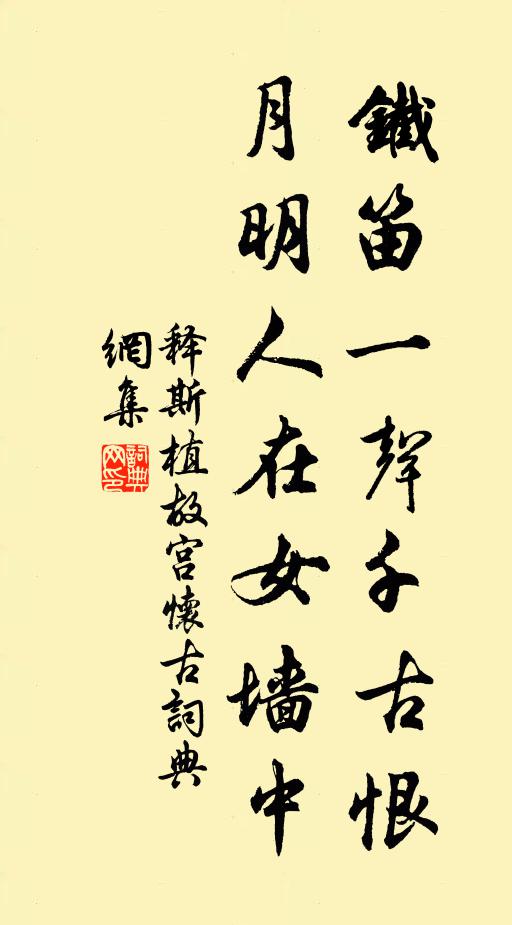 鐵笛一聲千古恨
月明人在女墻中
释斯植故宫懷古詞典
網集
詞典
网印